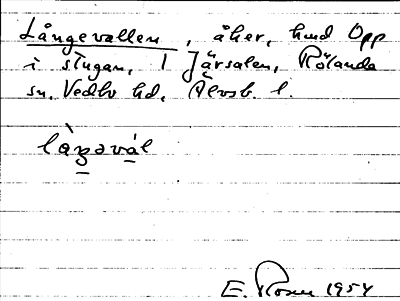 Långevallen, åker, hmd Opp
i stugan, 1 Järsalen, Rölanda
sn, Vedbo hd, Älvsb. l.
làŋavál
E. Rosen 1954